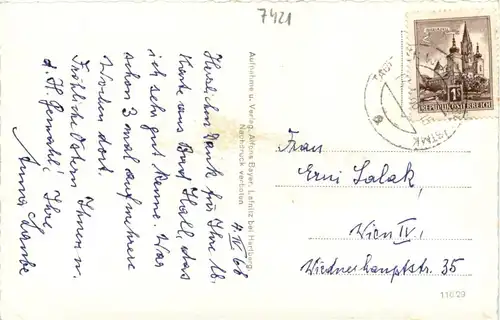 7421
4. IV 68
Herzlichen Dank für Ihre lb.
Karte aus Bad Hall, das
ich sehr gut kenne. War
schon 3 mal auf mehrere
Wochen dort.
Fröhliche Ostern Ihnen u.
d. H. Gemahl! Ihre
Anna
Aufnahme u. Verlag Alfons Bayer, Lafnitz bei Hartberg.
Nachdruck verboten.
MARIAZELL
S 1
REPUBLIK ÖSTERREICH
Frau
Erni Salak,
Wien IV,
Wiednerhauptstr. 35
11629